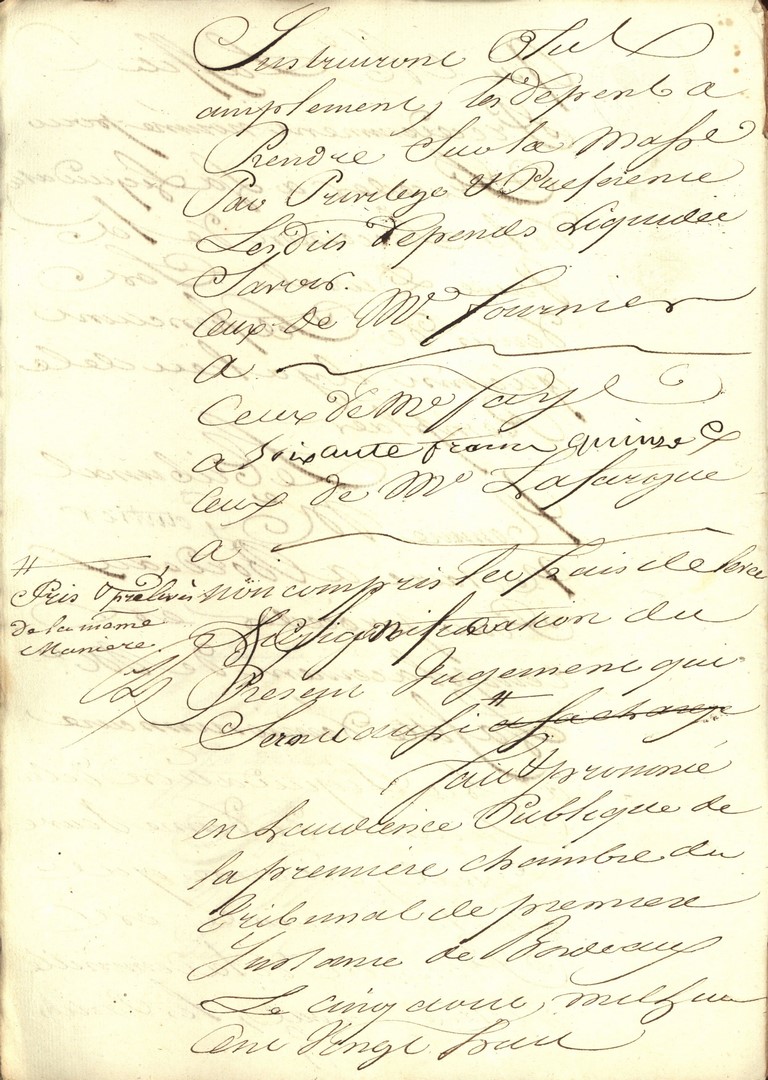 Instruiront Plus
amplement, les depent a
Prendre Sur la Masse
Par Privilege & Preference
Lesdits depends Liquidés
Savoir.
Ceux de Me. fournier
a
Ceux de Me faye
a soixante francs quinze c
Ceux de Me Lafargue
a
non compris les frais de Levée
& Signification du
Present Jugement qui
Seront aussi # a sa charge
# Pris & prélevés
de la meme
Maniere.
fait & prononcé
en Laudience Publique de
la premiere chambre du
tribunal de premiere
Instance de Bordeaux
Le cinq aout, mil huit
Cent Vingt